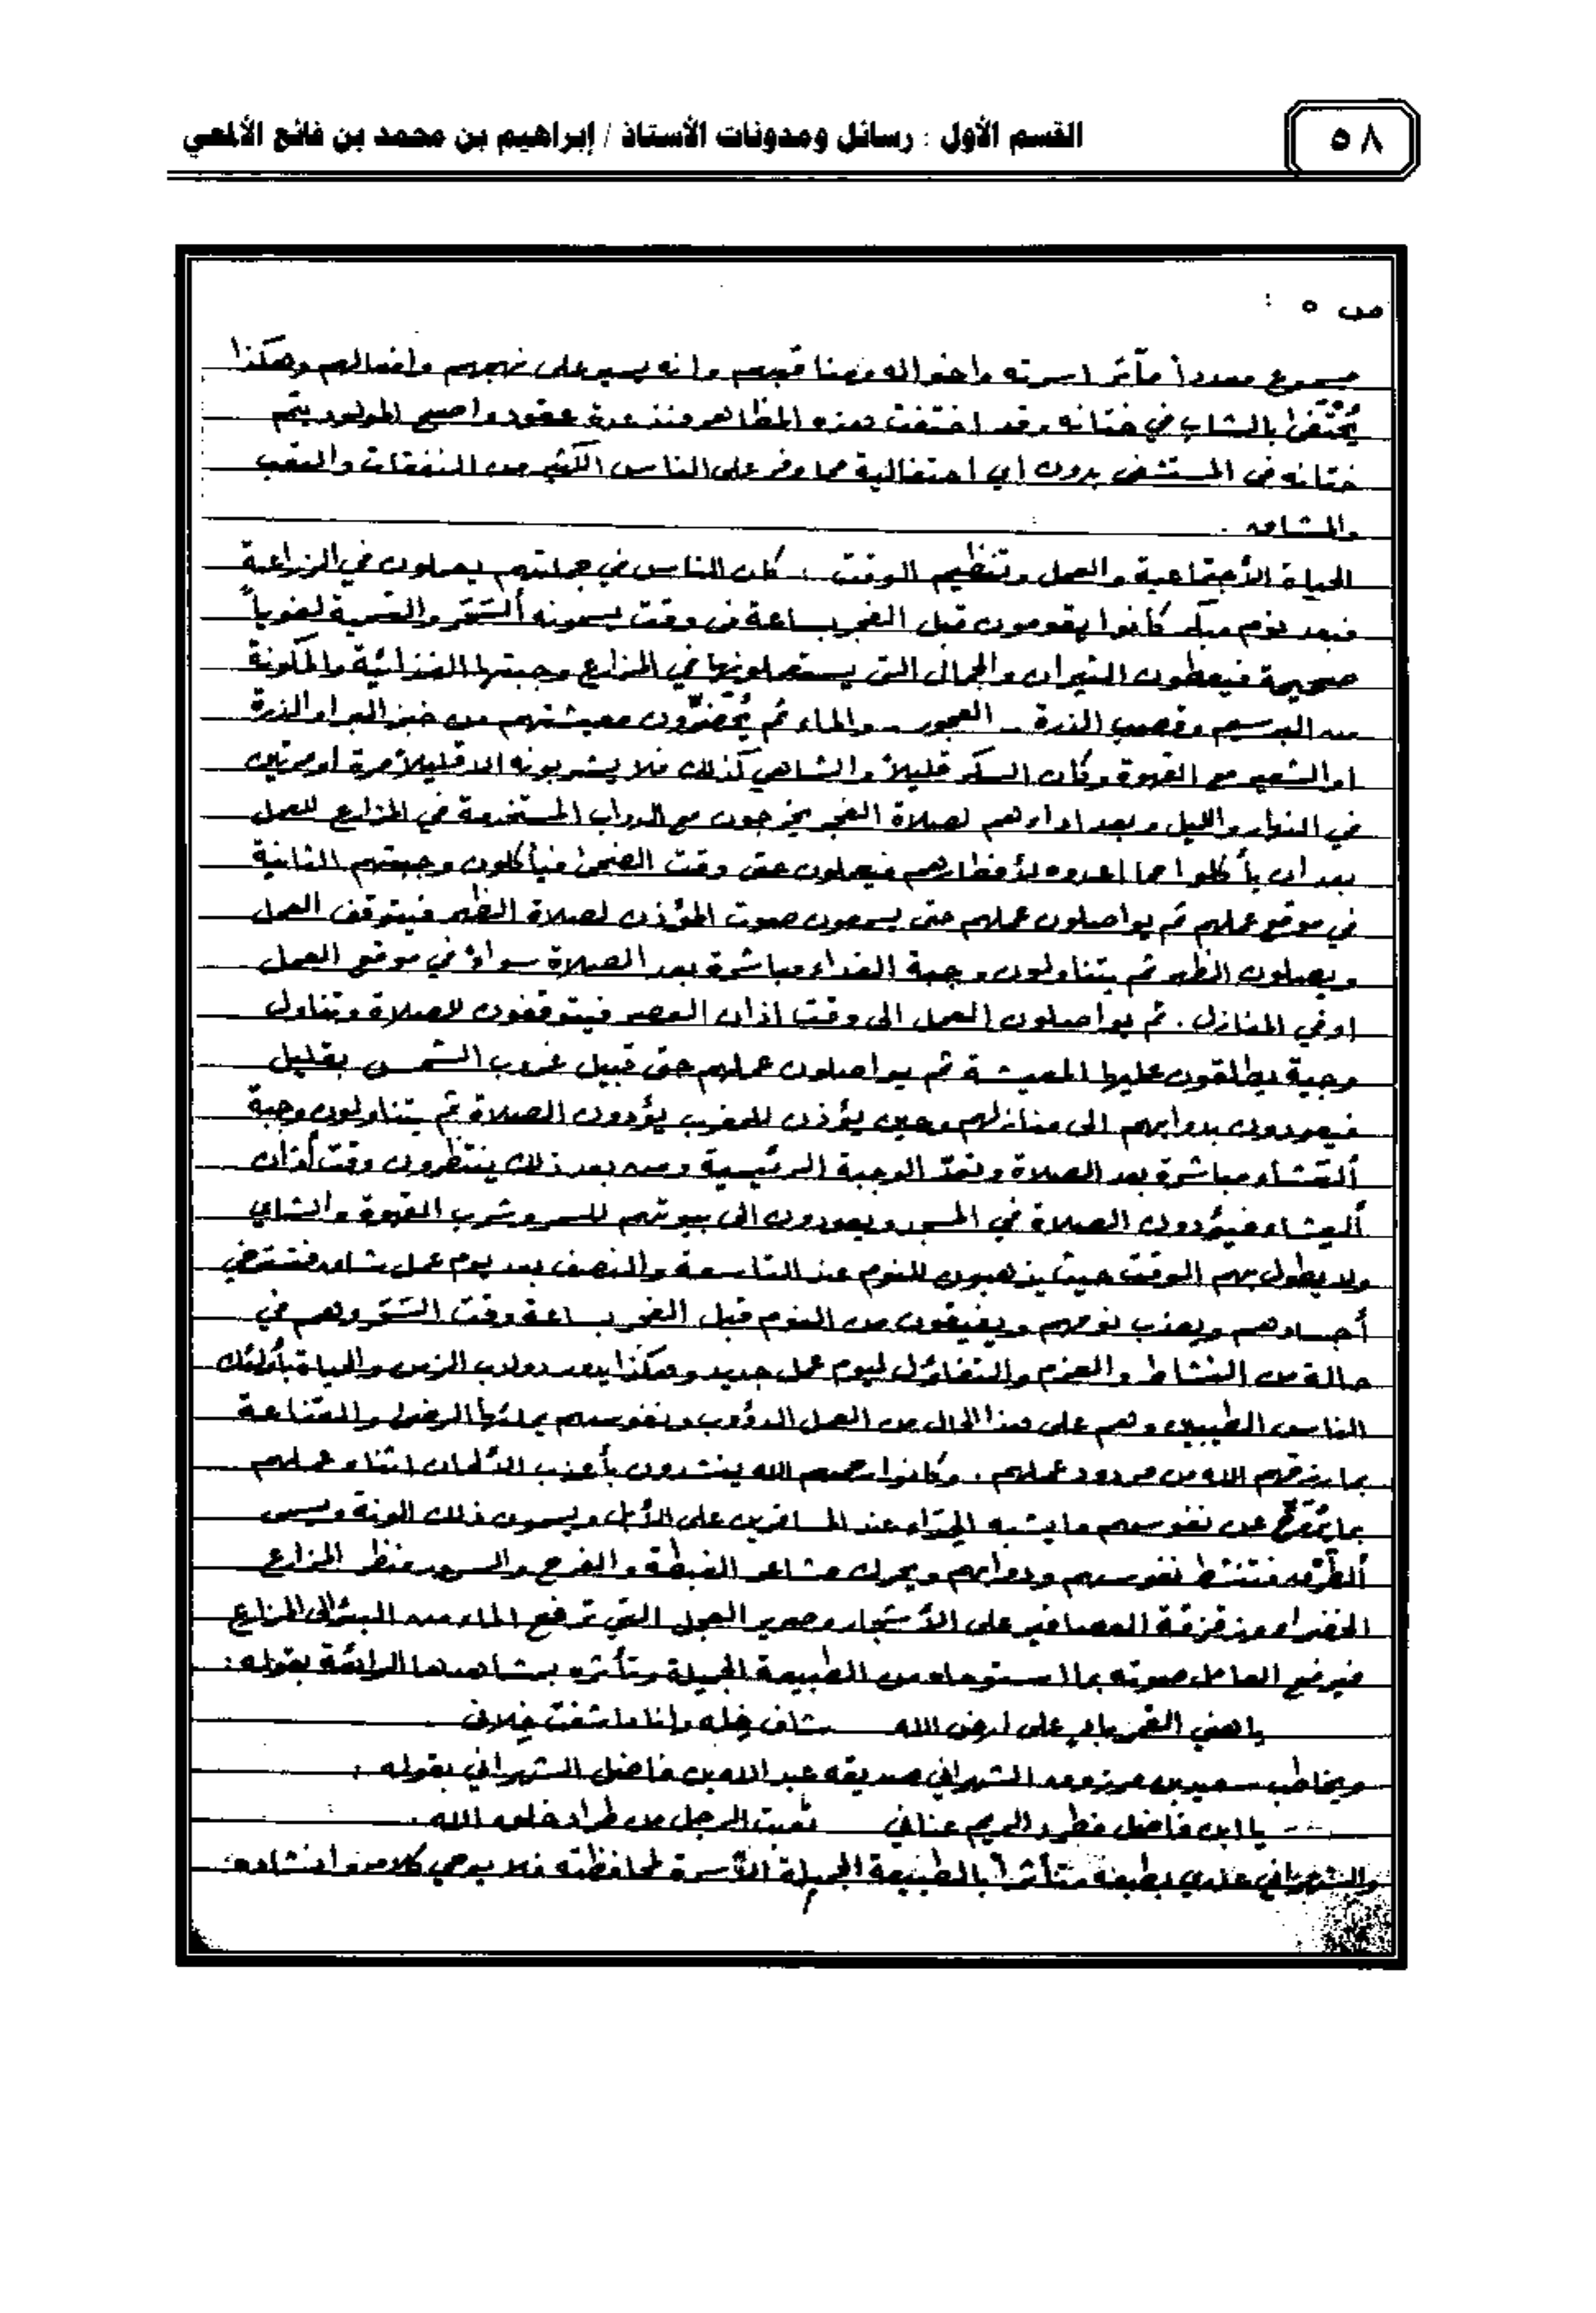 القسم الأول : رسائل ومدونات الأستاذ / إبراهيم بن محمد بن فائع الألمعي
٥٨
ص ٥ :
مسموع معدداً مآثر اسرته واخواله ومناقبهم وانه يسير على نهجهم وافعالهم وهكذا
يُحْتَفىٰ بالشاب في ختانه وقد اختفت هذه المظاهر منذ عدة عقود واصبح المولود يتم
ختانه في المستشفى بدون اي احتفالية مما وفر على الناس الكثير من النفقات والتعب
والمشاق .
الحياة الأجتماعية والعمل وتنظيم الوقت : كان الناس في جملتهم يعملون في الزراعة
فبعد نوم مبكر كانوا يقومون قبل الفجر بساعة في وقت يسمونه ألشقر والتسمية لغوياً
صحيحة فيعطون الثيران والجمال التي يستعملونها في المزارع وجبتها الغذائية والمكونة
من البرسيم وقصب الذرة - العجور - والماء ثم يُحَضّرون معيشتهم من خبز البر او الذرة
او الشعير مع القهوة وكان السكر قليلاً والشاهي كذلك فلا يشربونه الا قليلاً مرة او مرتين
في النهار والليل وبعد اداءهم لصلاة الفجر يخرجون مع الدواب المستخدمة في المزارع للعمل
بعد ان يأكلوا مما اعدوه لأفطارهم فيعملون حتى وقت الضحىٰ فيأكلون وجبتهم الثانية
في موقع عملهم ثم يواصلون عملهم حتى يسمعون صوت المؤذن لصلاة الظهر فيتوقف العمل
ويصلون الظهر ثم يتناولون وجبة الغداء مباشرة بعد الصلاة سواءً في موقع العمل
او في المنازل . ثم يواصلون العمل الى وقت اذان العصر فيتوقفون للصلاة وتناول
وجبة يطلقون عليها المعيشة ثم يواصلون عملهم حتى قبيل غروب الشمس بقليل
فيعودون بدوابهم الى منازلهم وحين يؤذن للمغرب يؤدون الصلاة ثم يتناولون وجبة
ألعَشاء مباشرة بعد الصلاة وتعدّ الوجبة الرئيسية ومن بعد ذلك ينتظرون وقت أذان
ألعِشاء فيؤدون الصلاة في المسجد ويعودون الى بيوتهم للسمر وشرب القهوة والشاي
ولا يطول بهم الوقت حيث يذهبون للنوم عند التاسعة والنصف بعد يوم عمل شاق فتسترخي
أجسادهم ويعذب نومهم ويفيقون من النوم قبل الفجر بساعة وقت الشقر وهم في
حالة من النشاط والعزم والتفاؤل ليوم عمل جديد وهكذا يدور دولاب الزمن والحياة بأولئك
الناس الطيبين وهم على هذا الحال من العمل الدؤوب ونفوسهم يملئها الرضىٰ والقناعة
بما رزقهم الله من مردود عملهم . وكانوا رحمهم الله ينشدون بأعذب الألحان اثناء عملهم
بما يُرَوِّح عن نفوسهم ما يشبه الحِدَاء عند المسافرين على الأبل ويسمون ذلك الونة ويسمى
ألطَّرق فتنشط نفوسهم ودوابهم ويحرك مشاعر الغبطة والفرح والسرور منظر المزارع
الخضراء وزقزقة العصافير على الأشجار وصرير العجل التي ترفع الماء من البئر الى المزارع
فيرفع العامل صوته بما استوحاه من الطبيعة الجميلة وتأثره بمشاهدها الرائعة بقوله :
ياهني القمر باد على ارض الله شاف خِله وانا ما شفت خِلاني
ويخاطب سعيد بن الشهراني صديقه عبدالله بن فاضل الشهراني بقوله :
يا ابن فاضل فطرد الريم عناني تعبت الرجل من طراد خلق الله .
والشهراني عذري بطبعه متأثراً بالطبيعة الجميلة الآسرة لمحافظته فلا يوحي كلامه وانشاده